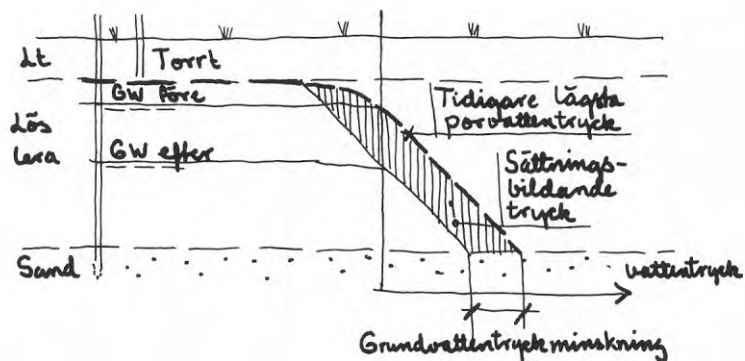 Lt
Torrt
GW före
Lös
lera
GW efter
Tidigare lägsta
porvattentryck
Sättnings-
bildande
tryck
Sand
vattentryck
Grundvattentryckminskning